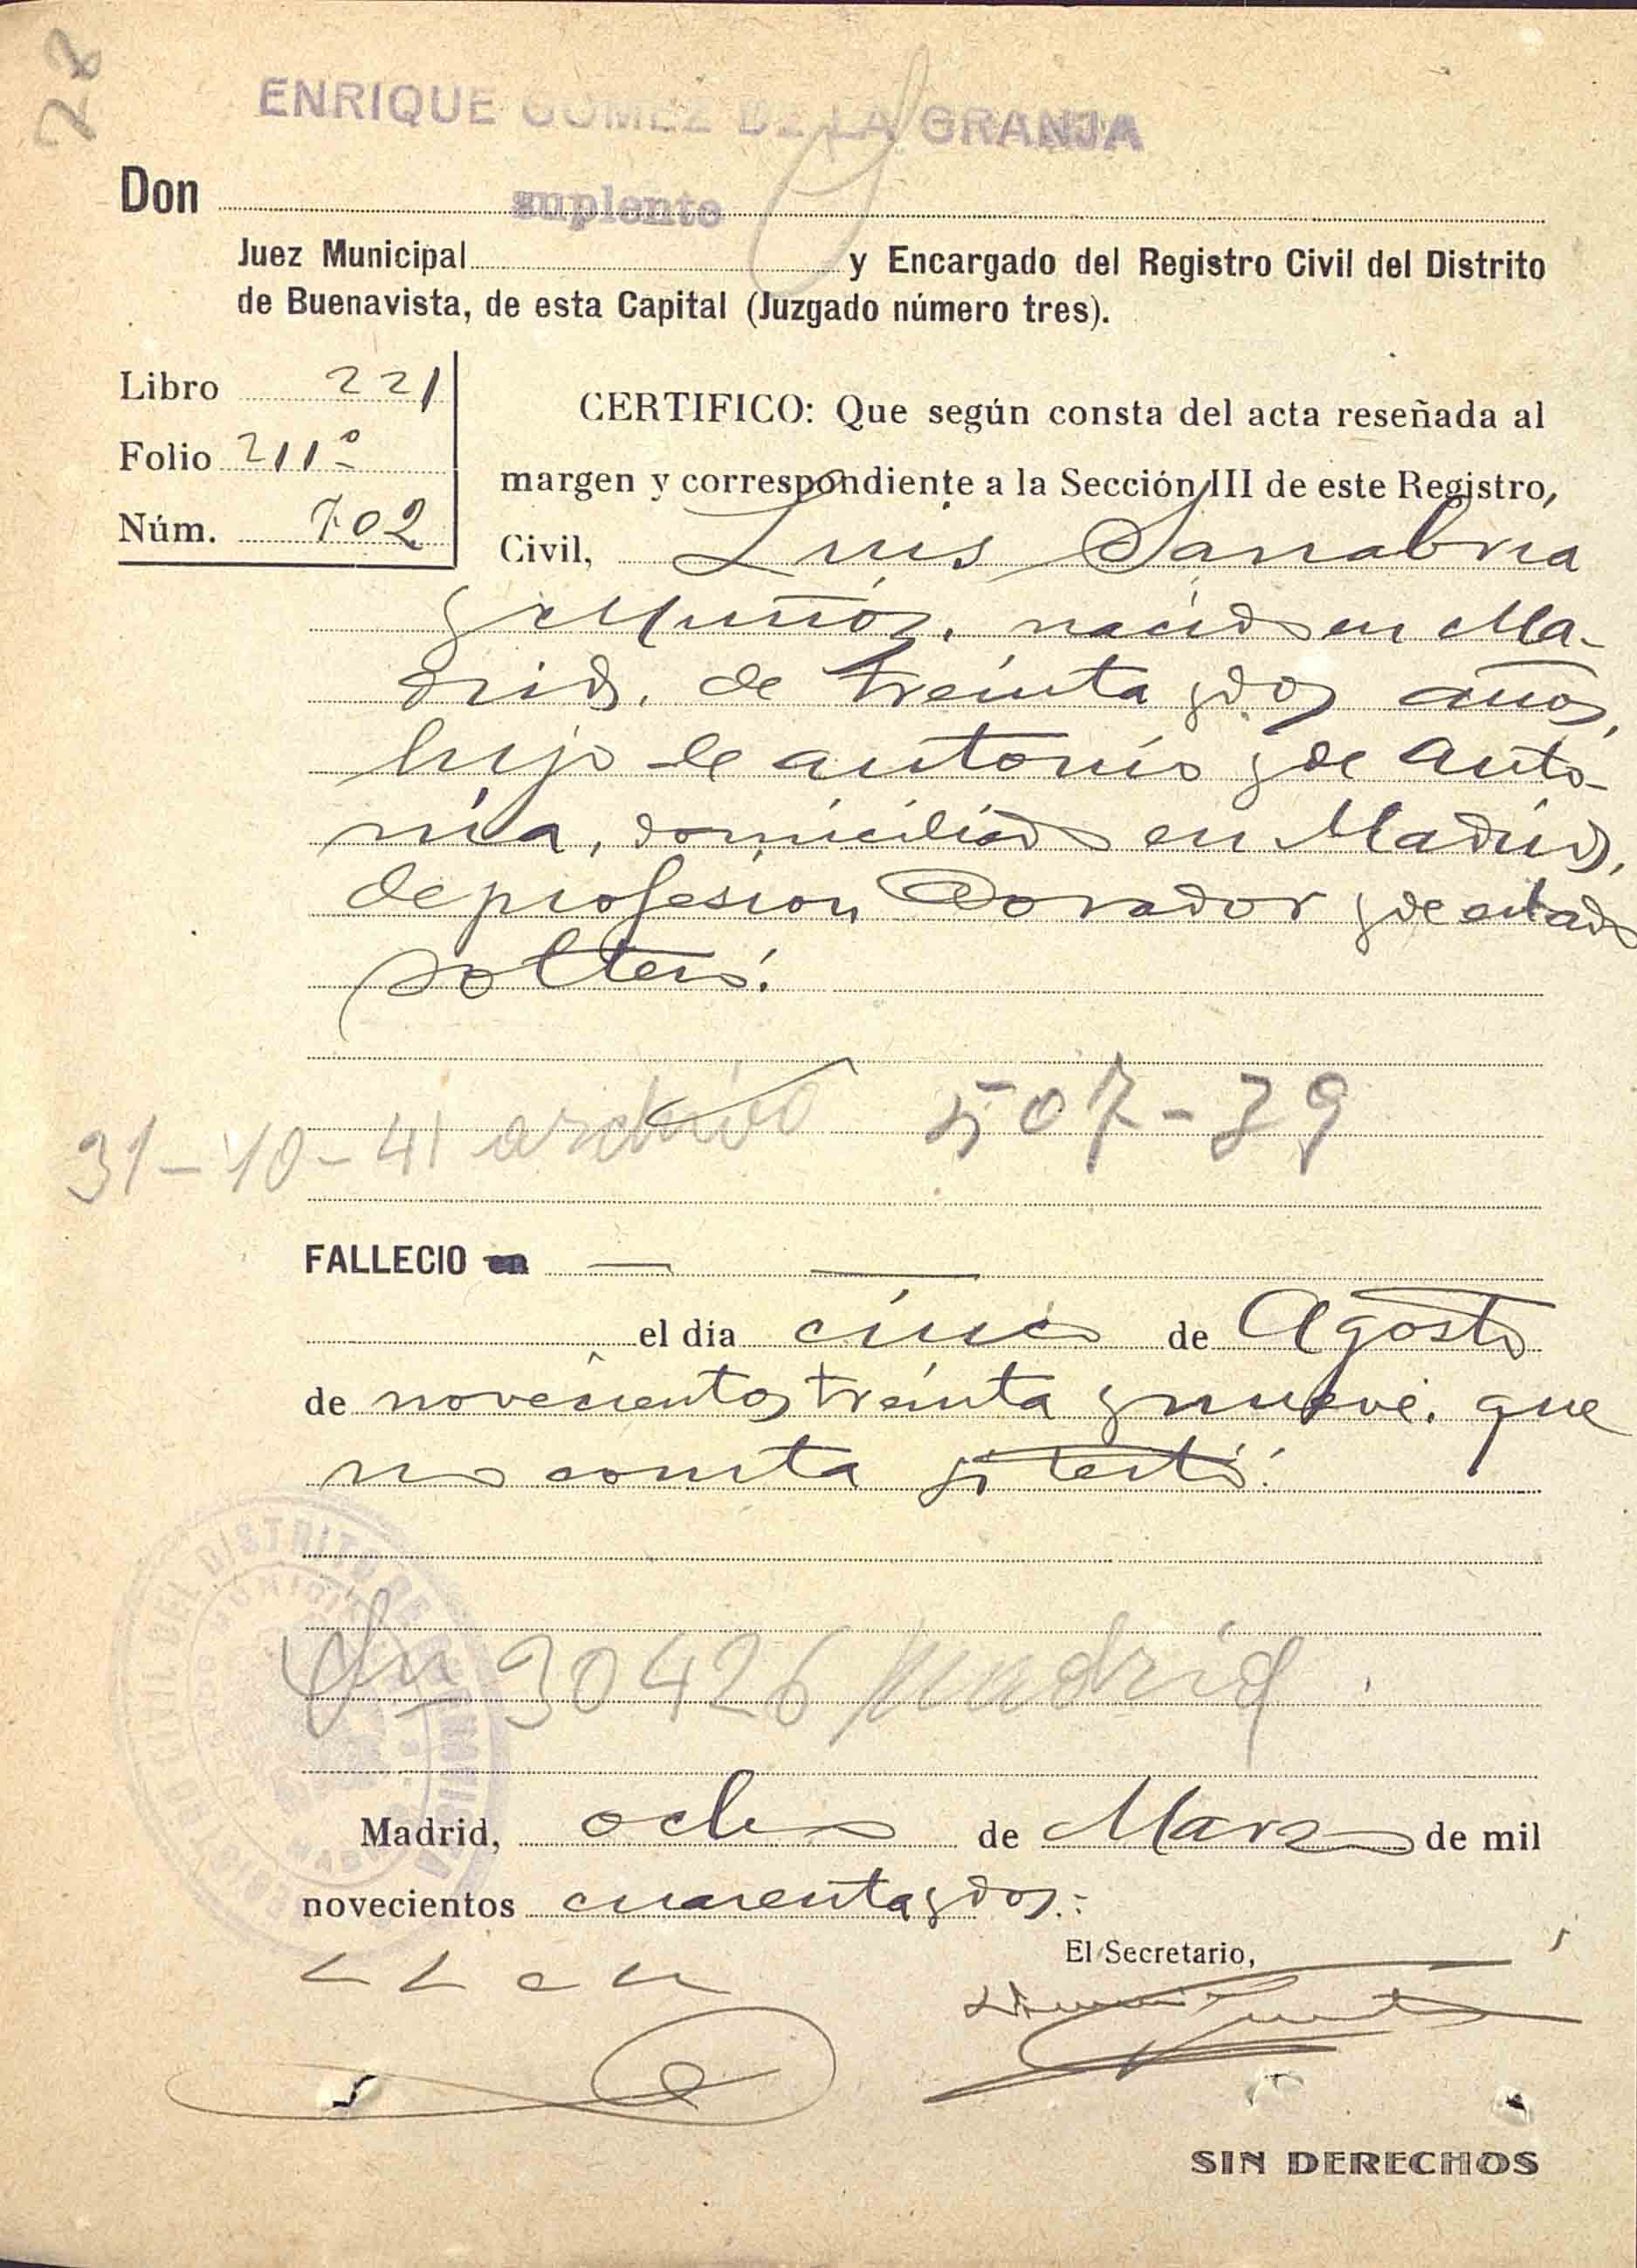 28
ENRIQUE GOMEZ DE LA GRANJA
Don
suplente
Juez Municipal y Encargado del Registro Civil del Distrito
de Buenavista, de esta Capital (Juzgado número tres).
Libro 221
Folio 211º
Núm. 702
CERTIFICO: Que según consta del acta reseñada al
margen y correspondiente a la Sección III de este Registro,
Civil, Luis Sanabria
y Muñoz, nacido en Ma-
drid, de treinta y dos años,
hijo de Antonio y de Anto-
nia, domiciliado en Madrid,
de profesion Dorador y de estado
soltero.
31-10-41 archivo 507-39
FALLECIO en
el día cinco de Agosto
de novecientos treinta y nueve. que
no consta si testó.
30426 Madrid
REGISTRO CIVIL DEL DISTRITO DE BUENAVISTA
JUZGADO MUNICIPAL
MADRID
Madrid, ocho de Marzo de mil
novecientos cuarenta y dos.
El Secretario,
SIN DERECHOS